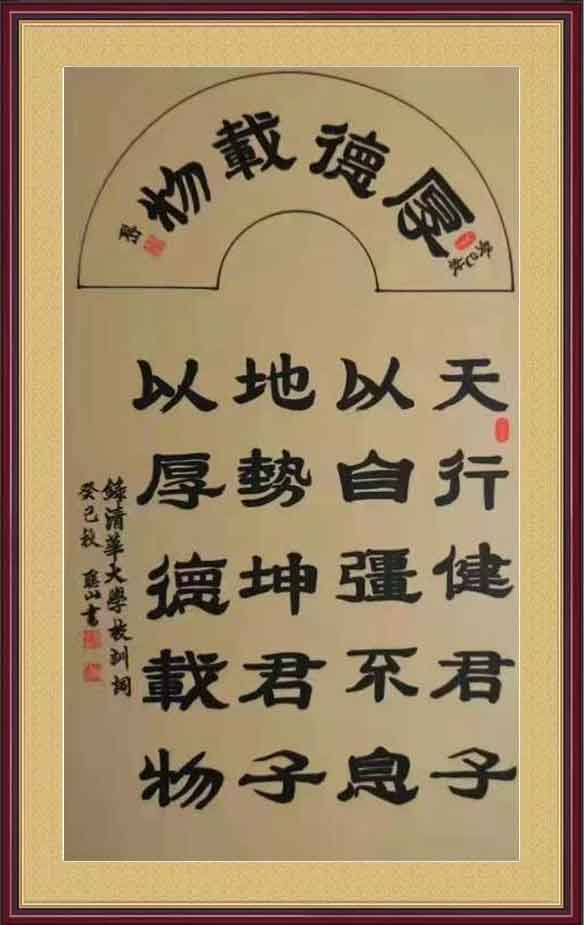 厚德載物
癸巳秋
天行健君子
以自彊不息
地勢坤君子
以厚德載物
錄清華大學校訓詞
癸巳秋
山書